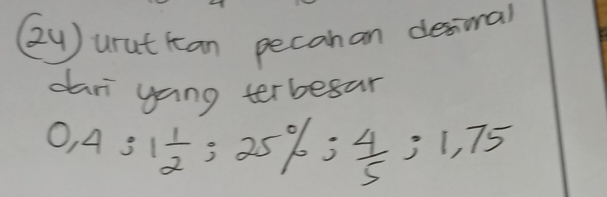 24) urutkan pecahan desimal
dari yang terbesar
0,4 ; 1 1/2 ; 25% ; 4/5 ; 1,75